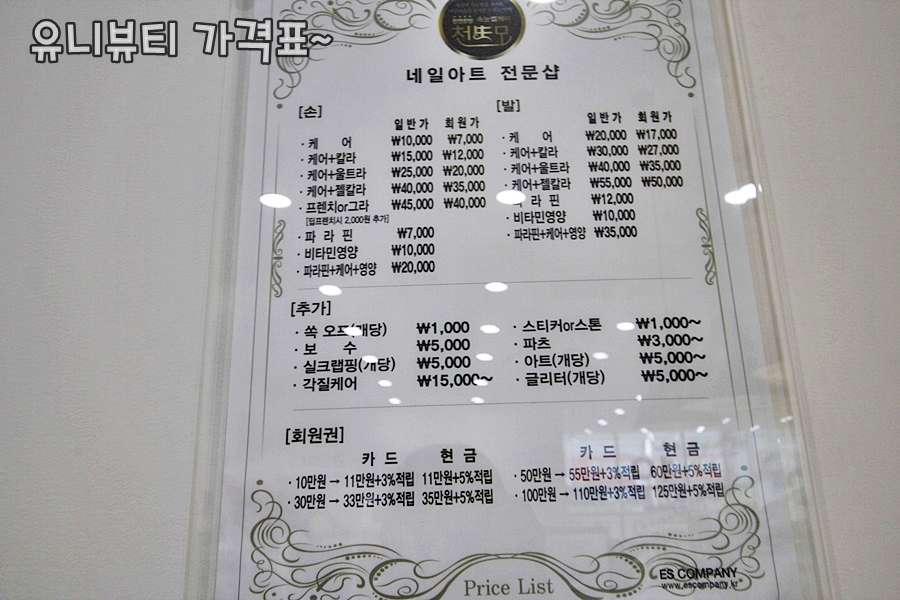 유니뷰티 가격표~
네일아트 전문샵
[손]
일반가 회원가
· 케 어 ₩10,000 ₩7,000
· 케어+칼라 ₩15,000 ₩12,000
· 케어+울트라 ₩25,000 ₩20,000
· 케어+젤칼라 ₩40,000 ₩35,000
· 프렌치or그라 ₩45,000 ₩40,000
[딥프렌치시 2,000원 추가]
· 파 라 핀 ₩7,000
· 비타민영양 ₩10,000
· 파라핀+케어+영양 ₩20,000
[발]
일반가 회원가
· 케 어 ₩20,000 ₩17,000
· 케어+칼라 ₩30,000 ₩27,000
· 케어+울트라 ₩40,000 ₩35,000
· 케어+젤칼라 ₩55,000 ₩50,000
라 핀 ₩12,000
· 비타민영양 ₩10,000
· 파라핀+케어+영양 ₩35,000
[추가]
· 쏙 오프(개당) ₩1,000
· 보 수 ₩5,000
· 실크랩핑(개당) ₩5,000
· 각질케어 ₩15,000~
· 스티커or스톤 ₩1,000~
· 파츠 ₩3,000~
· 아트(개당) ₩5,000~
· 글리터(개당) ₩5,000~
[회원권]
카 드 현 금
· 10만원 → 11만원+3%적립 11만원+5%적립
· 30만원 → 33만원+3%적립 35만원+5%적립
카 드 현 금
· 50만원 → 55만원+3%적립 60만원+5%적립
· 100만원 → 110만원+3%적립 125만원+5%적립
Price List
ES COMPANY
www.escompany.kr